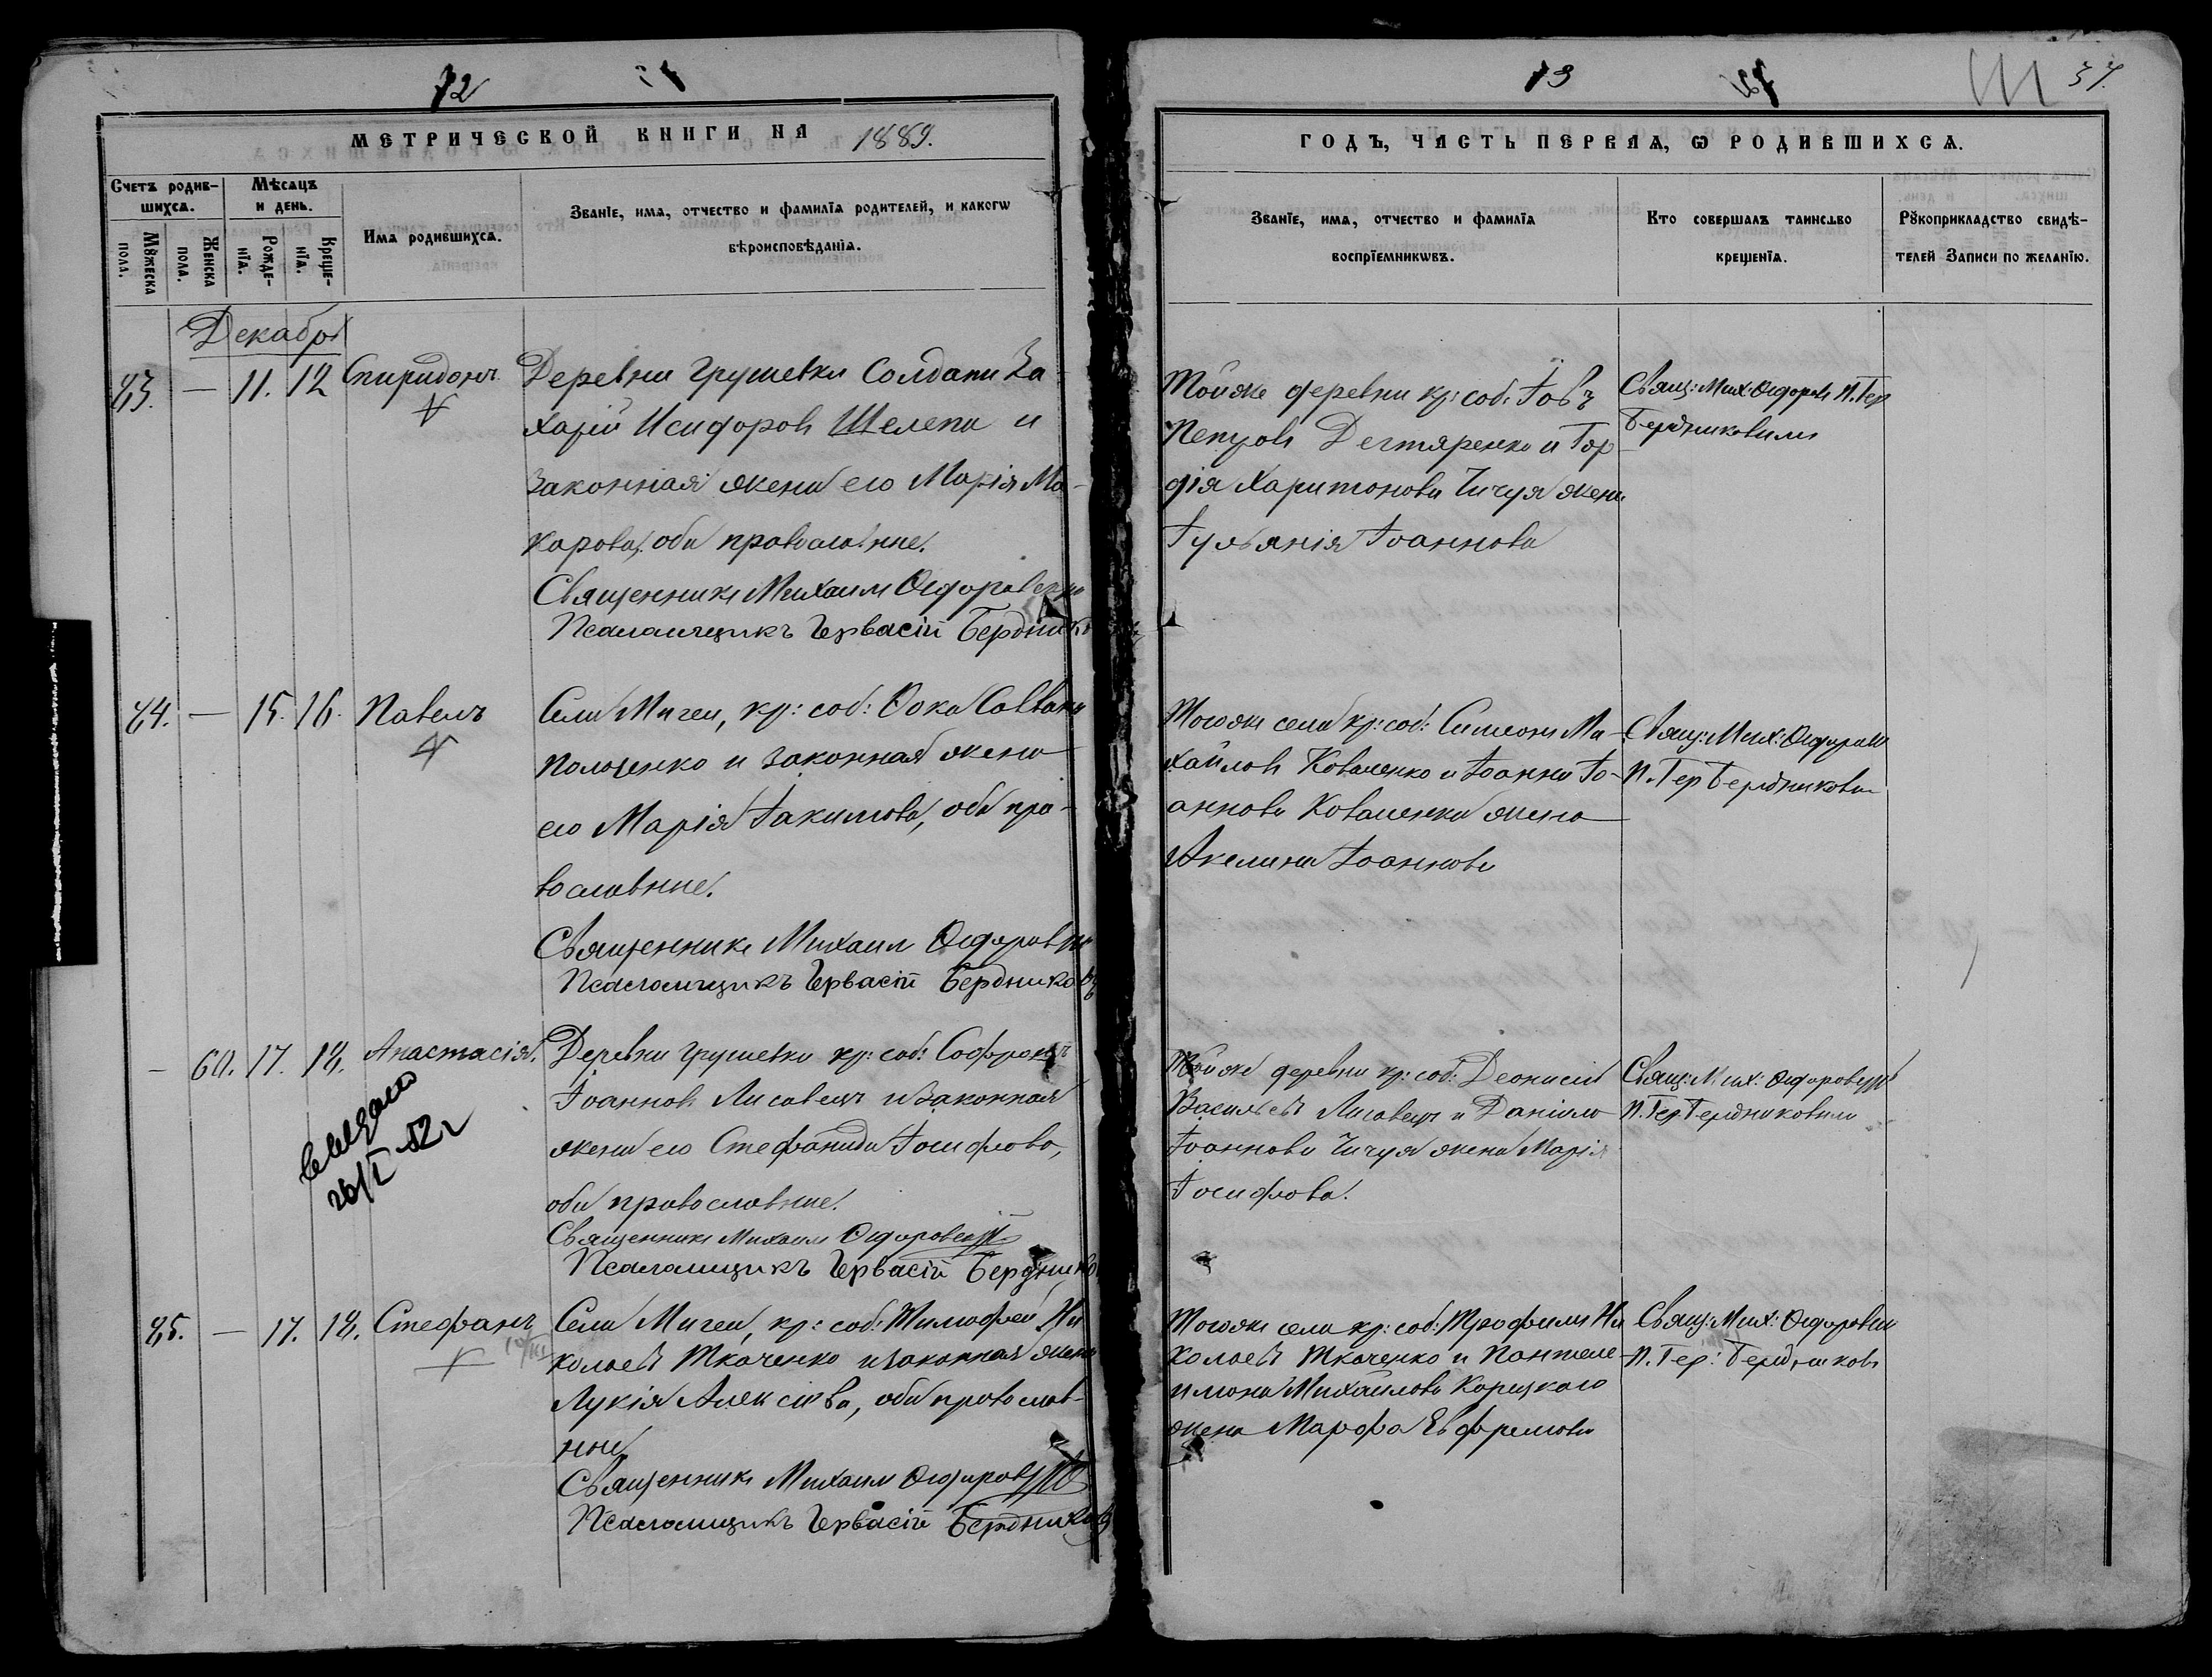 72
МЕТРИЧЕСКОЙ КНИГИ НА 1889.
Счетъ родившихся.
Мѣсяцъ и день.
Мꙋжеска пола.
Женска пола.
Рожденїя.
Крещенїя.
Имя родившихся.
Званїе, имя, отчество и фамилїя родителей, и какогѡ
вѣроисповѣданїя.
Декабрь
83. — 11. 12 Спиридонъ
Деревни Грушевки Солдатъ За-
харій Исидоровъ Шелепа и
законная жена его Марія Ма-
карова, оба православные.
Священникъ Михаилъ Ѳедоровскій
Псаломщикъ Гервасій Бердниковъ
84. — 15. 16. Павелъ
Села Мигеи, кр: соб: Ѳока Саввинъ
и законная жена
его Марія Іакимова, оба пра-
вославные.
Священникъ Михаилъ Ѳедоровскій
Псаломщикъ Гервасій Бердниковъ
— 60. 17. 18. Анастасія.
26/I - 52 г
Деревни Грушевки кр: соб: Софронъ
Іоанновъ Лисавецъ и законная
жена его Стефанида Іосифова,
оба православные.
Священникъ Михаилъ Ѳедоровскій
Псаломщикъ Гервасій Бердниковъ
85. — 17. 18. Стефанъ
Села Мигеи, кр: соб: Тимофей Ни-
колаевъ Ткаченко и законная жена
Лукія Алексіева, оба православ-
ные
Священникъ Михаилъ Ѳедоровскій
Псаломщикъ Гервасій Бердниковъ
73
37.
ГОДЪ, ЧАСТЬ ПЕРВАЯ, Ѡ РОДИВШИХСЯ.
Званїе, имя, отчество и фамилїя
воспрїемникѡвъ.
Кто совершалъ таинство
крещенїя.
Рꙋкоприкладство свидѣ-
телей записи по желанїю.
Той же деревни кр: соб: Іовъ
Петровъ Дегтяренко и Гор-
дія Харитонова Чичуя жена
Іульянія Іоаннова
Свящ: Мих: Ѳедоровс. П. Гер
Бердниковымъ
Того же села кр: соб: Симеонъ Ми-
хайловъ Коваленко и Іоанна Іо-
аннова Коваленка жена
Акелина Іоаннова
Свящ: Мих: Ѳедоровск
П. Гер Бердниковым
Той же деревни кр: соб: Деонисій
Васильевъ Лисавецъ и Даніила
Іоаннова Чичуя жена Марія
Іосифова.
Свящ: Мих: Ѳедоровскій
П. Гер Бердниковымъ
Того же села кр: соб: Трофимъ Ни-
колаевъ Ткаченко и Пантеле-
имона Михайлова Корецкаго
жена Марфа Евфремова
Свящ: Мих: Ѳедоровск
П. Гер: Бердниковъ